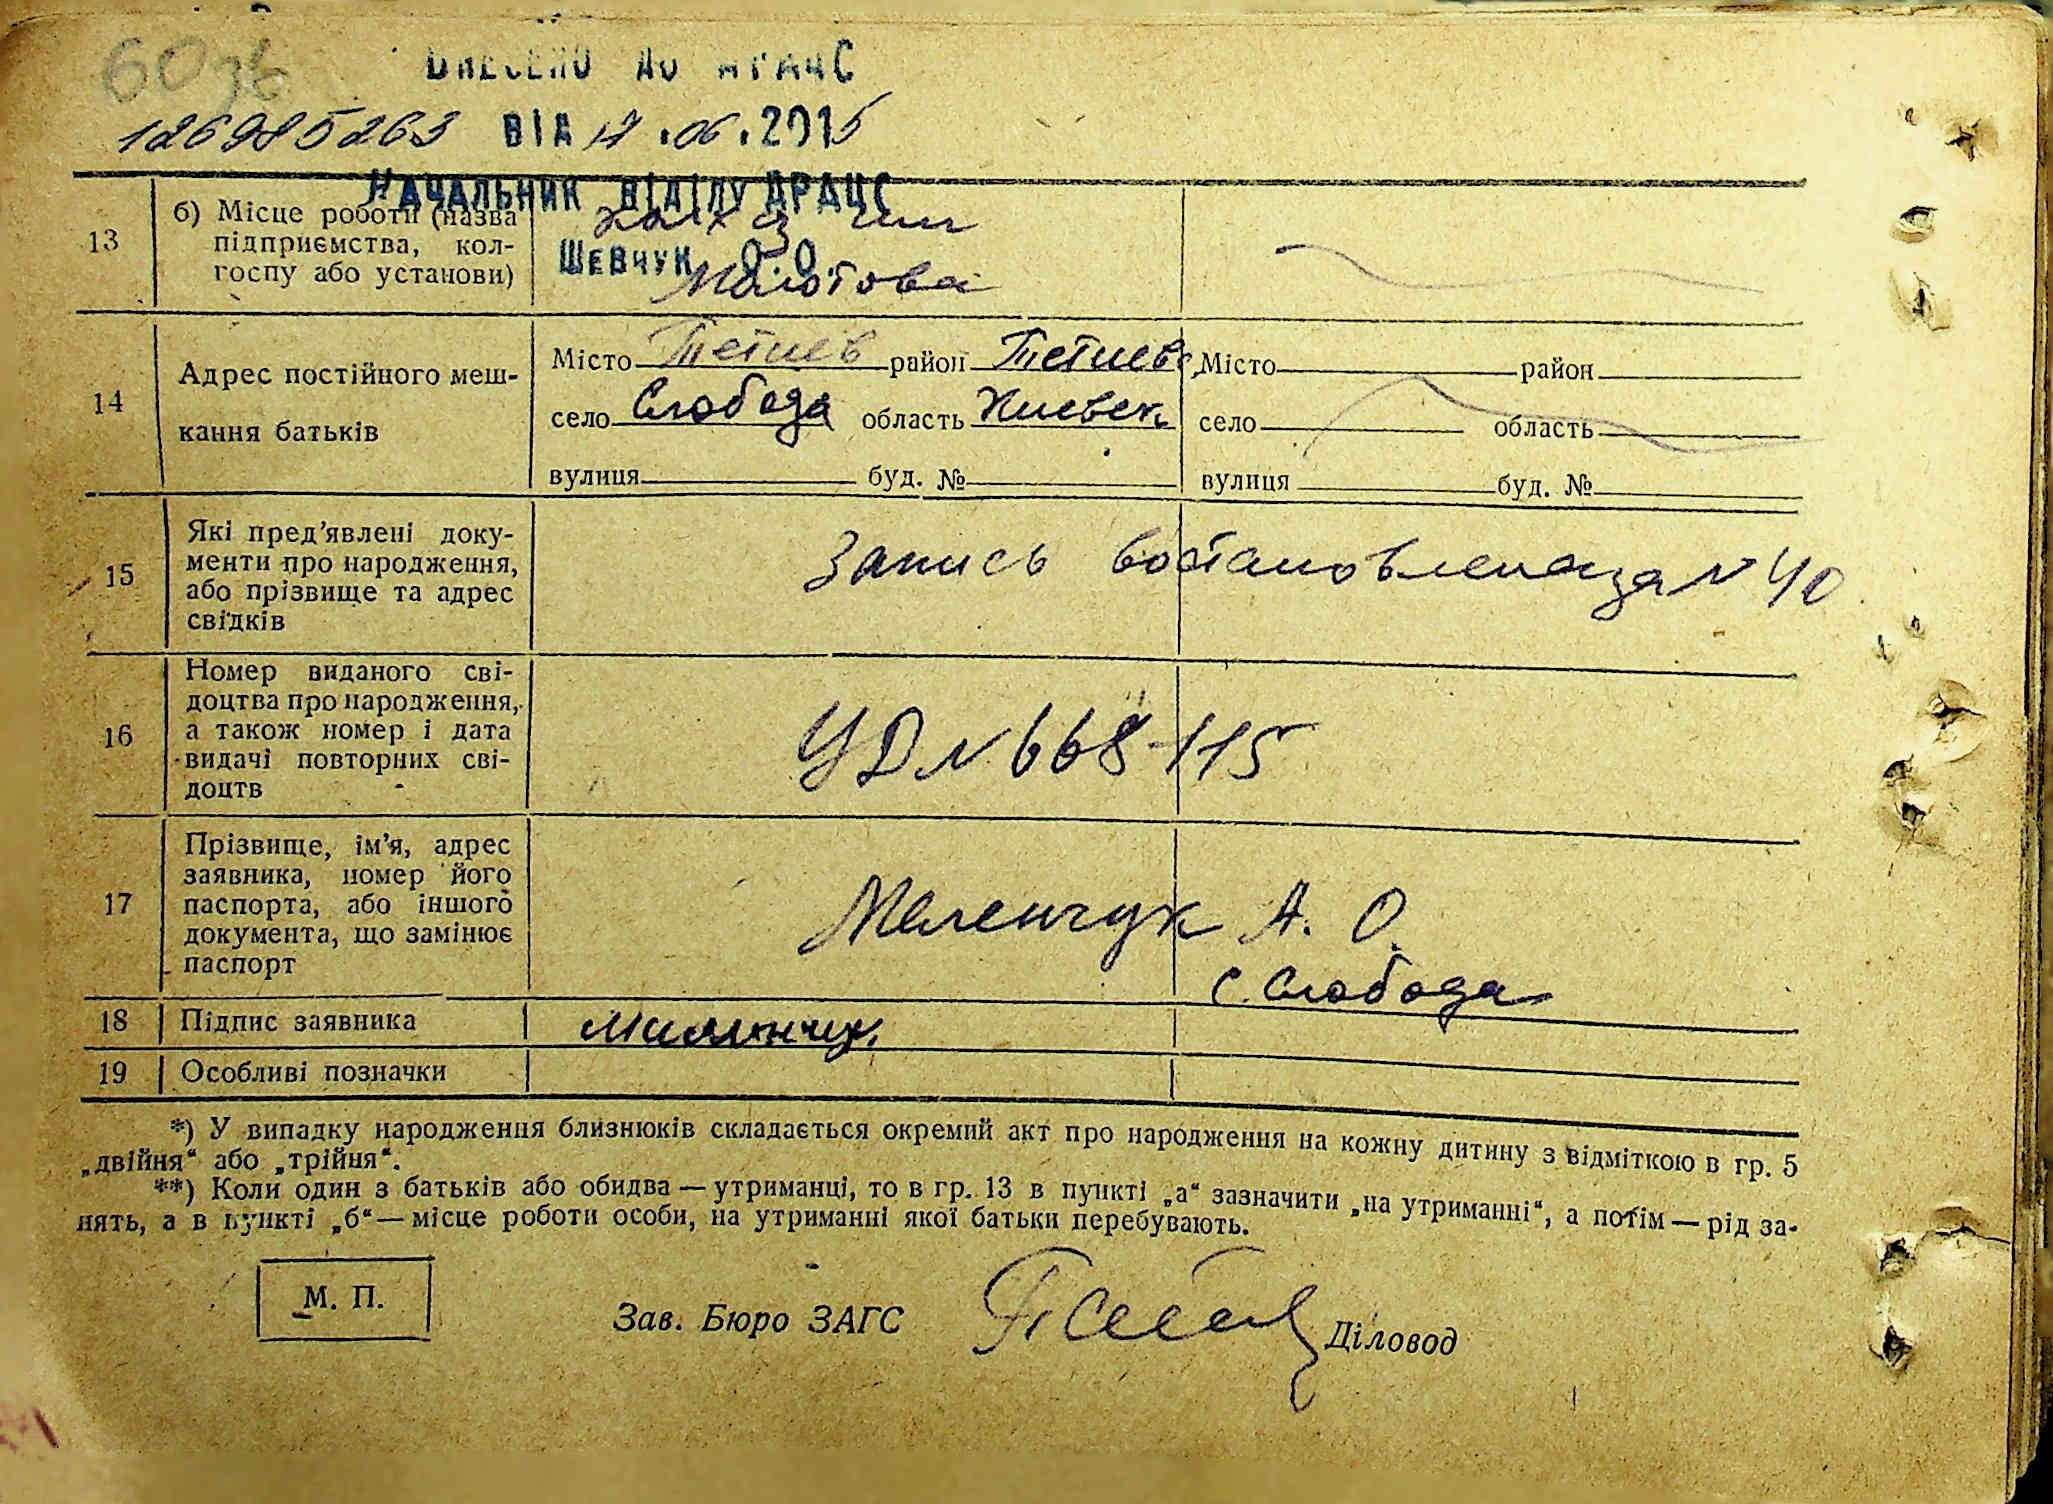 60 зв
ВНЕСЕНО ДО ДРАЦС
126985263 ВІД 17.06.2015
НАЧАЛЬНИК ВІДІЛУ ДРАЦС
ШЕВЧУК О.О.
13 б) Місце роботи (назва підприємства, кол-
госпу або установи)
колх з им
Молотова
14 Адрес постійного меш-
кання батьків
Місто Тетиев район Тетиевс
село Слобода область Киевск
вулиця буд. №
Місто район
село область
вулиця буд. №
15 Які пред'явлені доку-
менти про народження,
або прізвище та адрес
свідків
Запись востановленаза № 40
16 Номер виданого сві-
доцтва про народження,
а також номер і дата
видачі повторних сві-
доцтв
УД № 668115
17 Прізвище, ім'я, адрес
заявника, номер його
паспорта, або іншого
документа, що замінює
паспорт
Меленчук А. О.
с. Слобода
18 Підпис заявника
19 Особливі позначки
*) У випадку народження близнюків складається окремий акт про народження на кожну дитину з відміткою в гр. 5
„двійня“ або „трійня“.
**) Коли один з батьків або обидва — утриманці, то в гр. 13 в пункті „а“ зазначити „на утриманні“, а потім — рід за-
нять, а в пункті „б“ — місце роботи особи, на утриманні якої батьки перебувають.
М. П.
Зав. Бюро ЗАГС Діловод